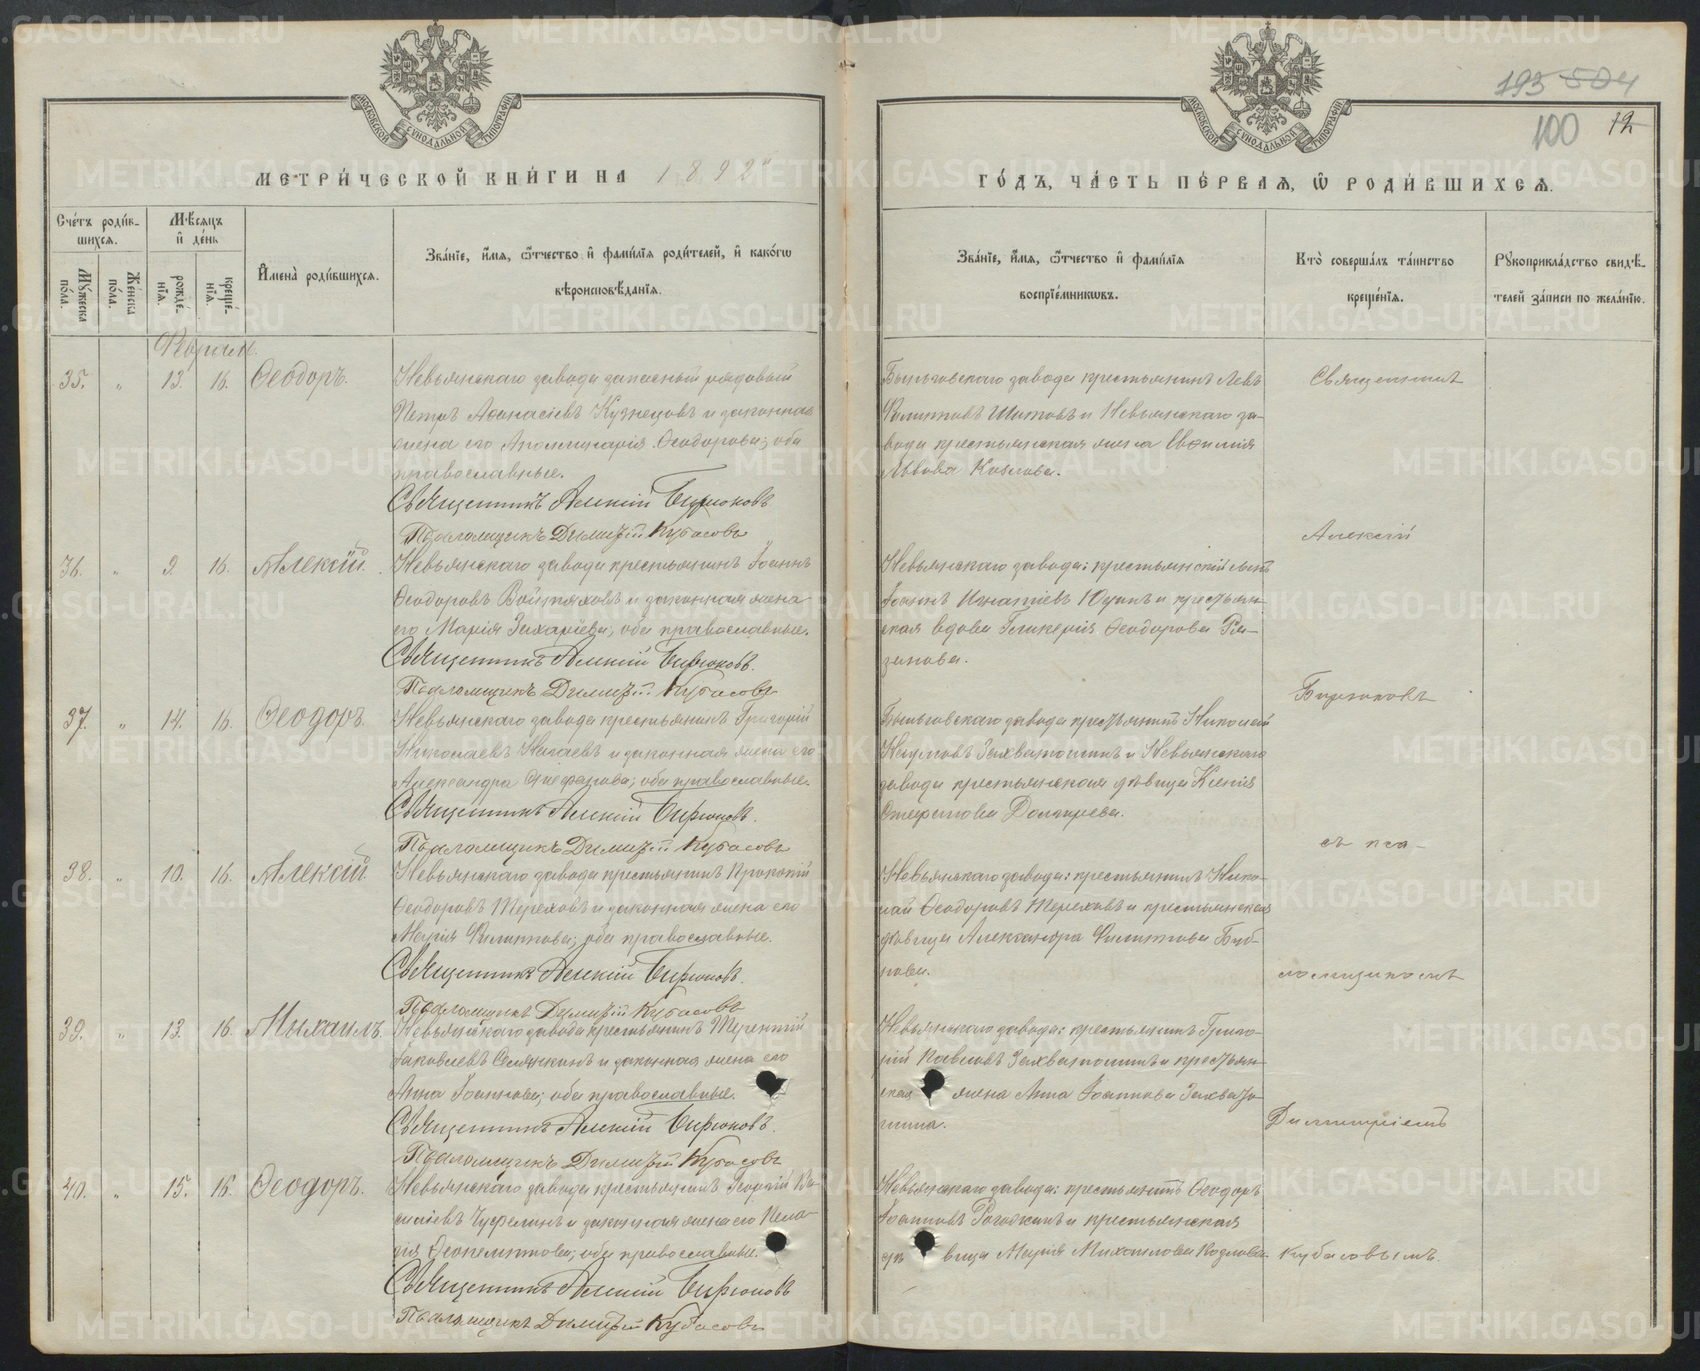 193 504
100 12
МОСКОВСКОЙ СѴНОДАЛЬНОЙ ТИПОГРАФІИ
МОСКОВСКОЙ СѴНОДАЛЬНОЙ ТИПОГРАФІИ
МЕТРИ́ЧЕСКОЙ КНИ́ГИ НА 1892й
ГО́ДЪ, ЧА́СТЬ ПЕ́РВАѦ, Ѡ҆ РОДИ́ВШИХСѦ.
Сче́тъ роди́в-
шихся.
Му́жеска по́ла.
Же́нска по́ла.
Мѣ́сяцъ и҆ де́нь
рожде́-нїя.
креще́-нїя.
И҆мена̀ роди́вшихся.
Зва́нїе, и҆́мя, ѻ҆́тчество и҆ фами́лїя роди́телей, и҆ како́гѡ
вѣроисповѣ́данїя.
Зва́нїе, и҆́мя, ѻ҆́тчество и҆ фами́лїя
воспрїе́мникѡвъ.
Кто̀ соверша́лъ та́инство
креще́нїя.
Рꙋкоприкла́дство свидѣ́-
телей за́писи по жела́нїю.
35. " 13. 16. Ѳеодоръ.
Невьянскаго завода запасный рядовый
Петръ Аѳанасіевъ Кузнецовъ и законная
жена его Аполлинарія Ѳеодорова; оба
православные.
Священникъ Алексій Бирюковъ.
Псаломщикъ Димитрій Кубасовъ
Быньговскаго завода крестьянинъ Левъ
Филипповъ и Невьянскаго за-
вода крестьянская жена Евфимія
Львова Козлова.
Священникъ
36. " 9. 16. Алексій.
Невьянскаго завода крестьянинъ Іоаннъ
Ѳеодоровъ Войтяховъ и законная жена
его Марія Захаріева; оба православные.
Священникъ Алексій Бирюковъ.
Псаломщикъ Димитрій Кубасовъ
Невьянскаго завода: крестьянскій сынъ
Іоаннъ Игнатіевъ и крестьян-
ская вдова Гликерія Ѳеодорова Ря-
занова.
Алексій
37. " 14. 16. Ѳеодоръ.
Невьянскаго завода крестьянинъ Григорій
Николаевъ и законная жена его
Александра Стефанова; оба православные.
Священникъ Алексій Бирюковъ.
Псаломщикъ Димитрій Кубасовъ
Быньговскаго завода крестьянинъ Николай
Захваткинъ и Невьянскаго
завода крестьянская дѣвица Ксенія
Стефанова.
Бирюковъ
38. " 10. 16. Алексій.
Невьянскаго завода крестьянинъ Прокопій
Ѳеодоровъ Тереховъ и законная жена его
Марія Филиппова; оба православные.
Священникъ Алексій Бирюковъ.
Псаломщикъ Димитрій Кубасовъ
Невьянскаго завода: крестьянинъ Нико-
лай Ѳеодоровъ Тереховъ и крестьянская
дѣвица Александра Филиппова Буб-
нова.
съ пса-
ломщикомъ
39. " 13. 16. Михаилъ.
Невьянскаго завода крестьянинъ Терентій
Іаковлевъ и законная жена его
Анна Іоаннова; оба православные.
Священникъ Алексій Бирюковъ.
Псаломщикъ Димитрій Кубасовъ
Невьянскаго завода: крестьянинъ Григо-
рій Павловъ Захваткинъ и крестьян-
ская жена Анна Іоаннова Захват-
кина.
Димитріемъ
40. " 15. 16. Ѳеодоръ.
Невьянскаго завода крестьянинъ Георгій Ва-
силіевъ и законная жена его Пела-
гія Ѳеопемптова; оба православные.
Священникъ Алексій Бирюковъ
Псаломщикъ Димитрій Кубасовъ
Невьянскаго завода: крестьянинъ Ѳеодоръ
Іоанновъ Рогожинъ и крестьянская
дѣвица Марія Михаилова Козлова.
Кубасовымъ.
METRIKI.GASO-URAL.RU